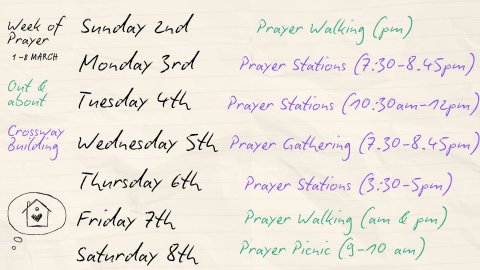 Week of
Prayer
1-8 MARCH
Out &
about
Crossway
Building
Sunday 2nd Prayer Walking (pm)
Monday 3rd Prayer Stations (7:30-8.45pm)
Tuesday 4th Prayer Stations (10:30am-12pm)
Wednesday 5th Prayer Gathering (7.30-8.45pm)
Thursday 6th Prayer Stations (3:30-5pm)
Friday 7th Prayer Walking (am & pm)
Saturday 8th Prayer Picnic (9-10 am)